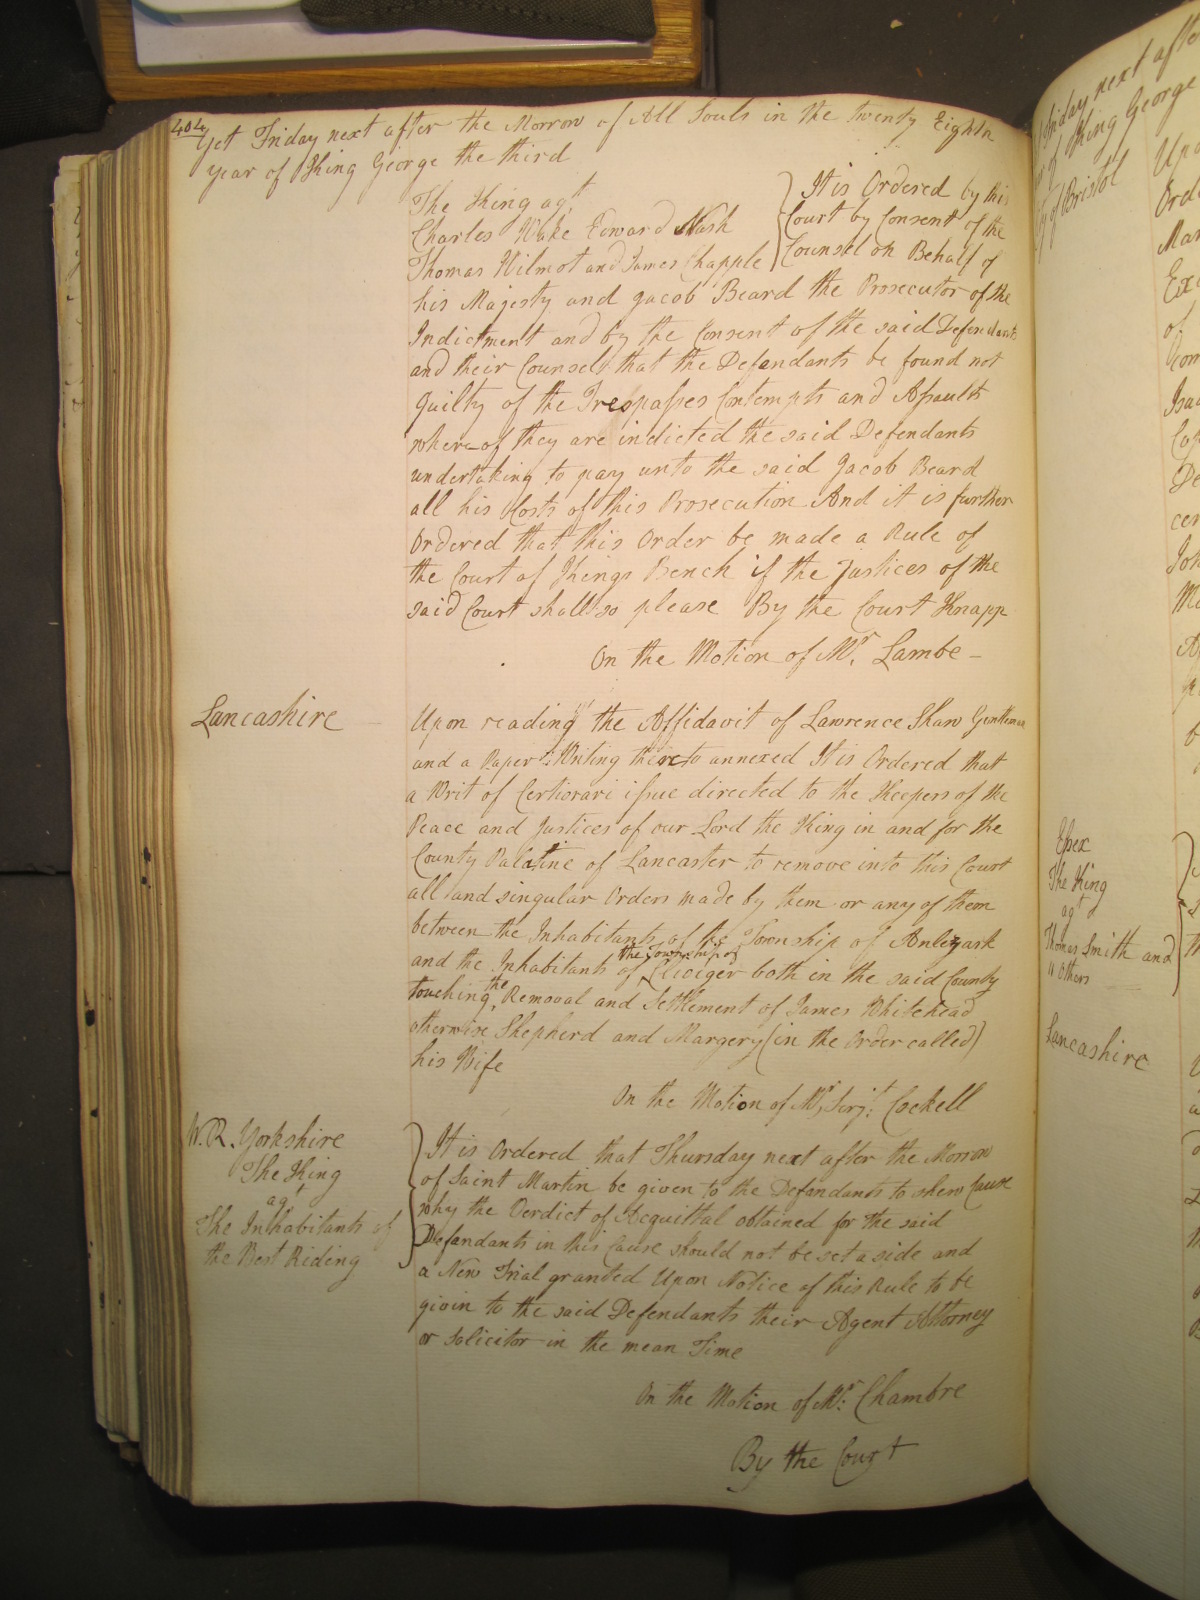 404
Yet Friday next after the Morrow of All Souls in the twenty Eighth
year of King George the third
The King agt
Charles Wake Edward Nash
Thomas Wilmot and James Chapple
It is Ordered by this
Court by Consent of the
Counsel on Behalf of
his Majesty and Jacob Beard the Prosecutor of the
Indictment and by the Consent of the said Defendants
and their Counsel that the Defendants be found not
Guilty of the Trespasses Contempts and Assaults
whereof they are indicted the said Defendants
undertaking to pay unto the said Jacob Beard
all his Costs of this Prosecution And it is further
Ordered that this Order be made a Rule of
the Court of Kings Bench if the Justices of the
said Court shall so please By the Court Knapp
On the Motion of Mr. Lambe
Lancashire
Upon reading the Affidavit of Lawrence Shaw Gentleman
and a Paper Writing thereto annexed It is Ordered that
a Writ of Certiorari issue directed to the Keepers of the
Peace and Justices of our Lord the King in and for the
County Palatine of Lancaster to remove into this Court
all and singular Orders made by them or any of them
between the Inhabitants of the Township of Anlezark
and the Inhabitants of the Township of Cliviger both in the said County
touching the Removal and Settlement of James Whitehead
otherwise Shepherd and Margery (in the Order called)
his Wife
On the Motion of Mr. Serjt. Cockell
W.R. Yorkshire
The King
agt
The Inhabitants of
the West Riding
It is Ordered that Thursday next after the Morrow
of Saint Martin be given to the Defendants to shew Cause
why the Verdict of Acquittal obtained for the said
Defendants in this Cause should not be set aside and
a New Trial granted Upon Notice of this Rule to be
given to the said Defendants their Agent Attorney
or Solicitor in the mean Time
On the Motion of Mr. Chambre
By the Court
Friday next after
of King George
of Bristol
Essex
The King
agt
Thomas Smith and
11 others
Lancashire